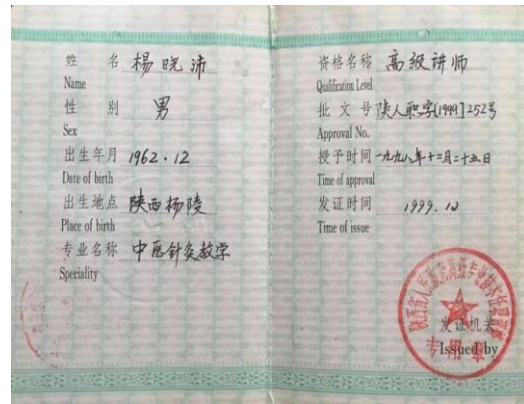 姓 名 楊晓沛
Name
性 别 男
Sex
出生年月 1962.12
Date of birth
出生地点 陕西杨陵
Place of birth
专业名称 中医针灸教学
Speciality
资格名称 高级讲师
Qualification Level
批文号 陕人职字[1999]252号
Approval No.
授予时间 一九九八年十二月二十五日
Time of approval
发证时间 1999.10
Time of issue
发证机关
Issued by